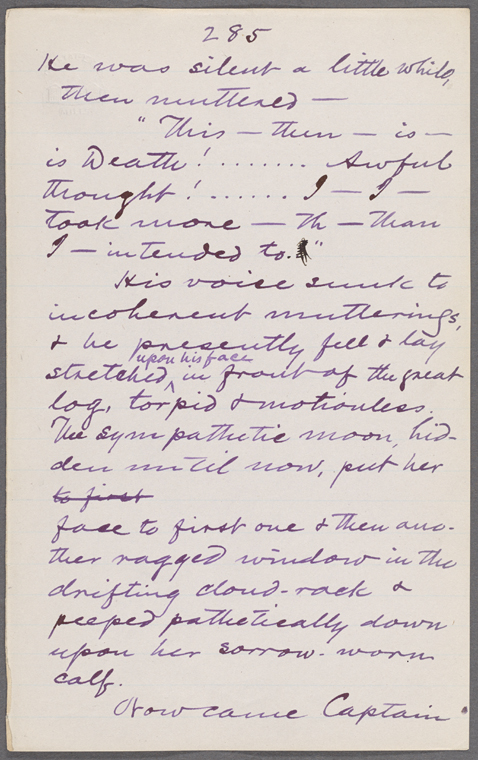 285
He was silent a little while,
then muttered —
"This — then — is —
is Death! ....... Awful
thought! ...... I — I —
took more — th — than
I — intended to."
His voice sunk to
incoherent mutterings,
& he presently fell & lay
upon his face
stretched, in front of the great
log, torpid & motionless.
The sympathetic moon, hid-
den until now, put her
to first
face to first one & then ano-
ther ragged window in the
drifting cloud-rack &
peeped pathetically down
upon her sorrow-worn
calf.
Now came Captain